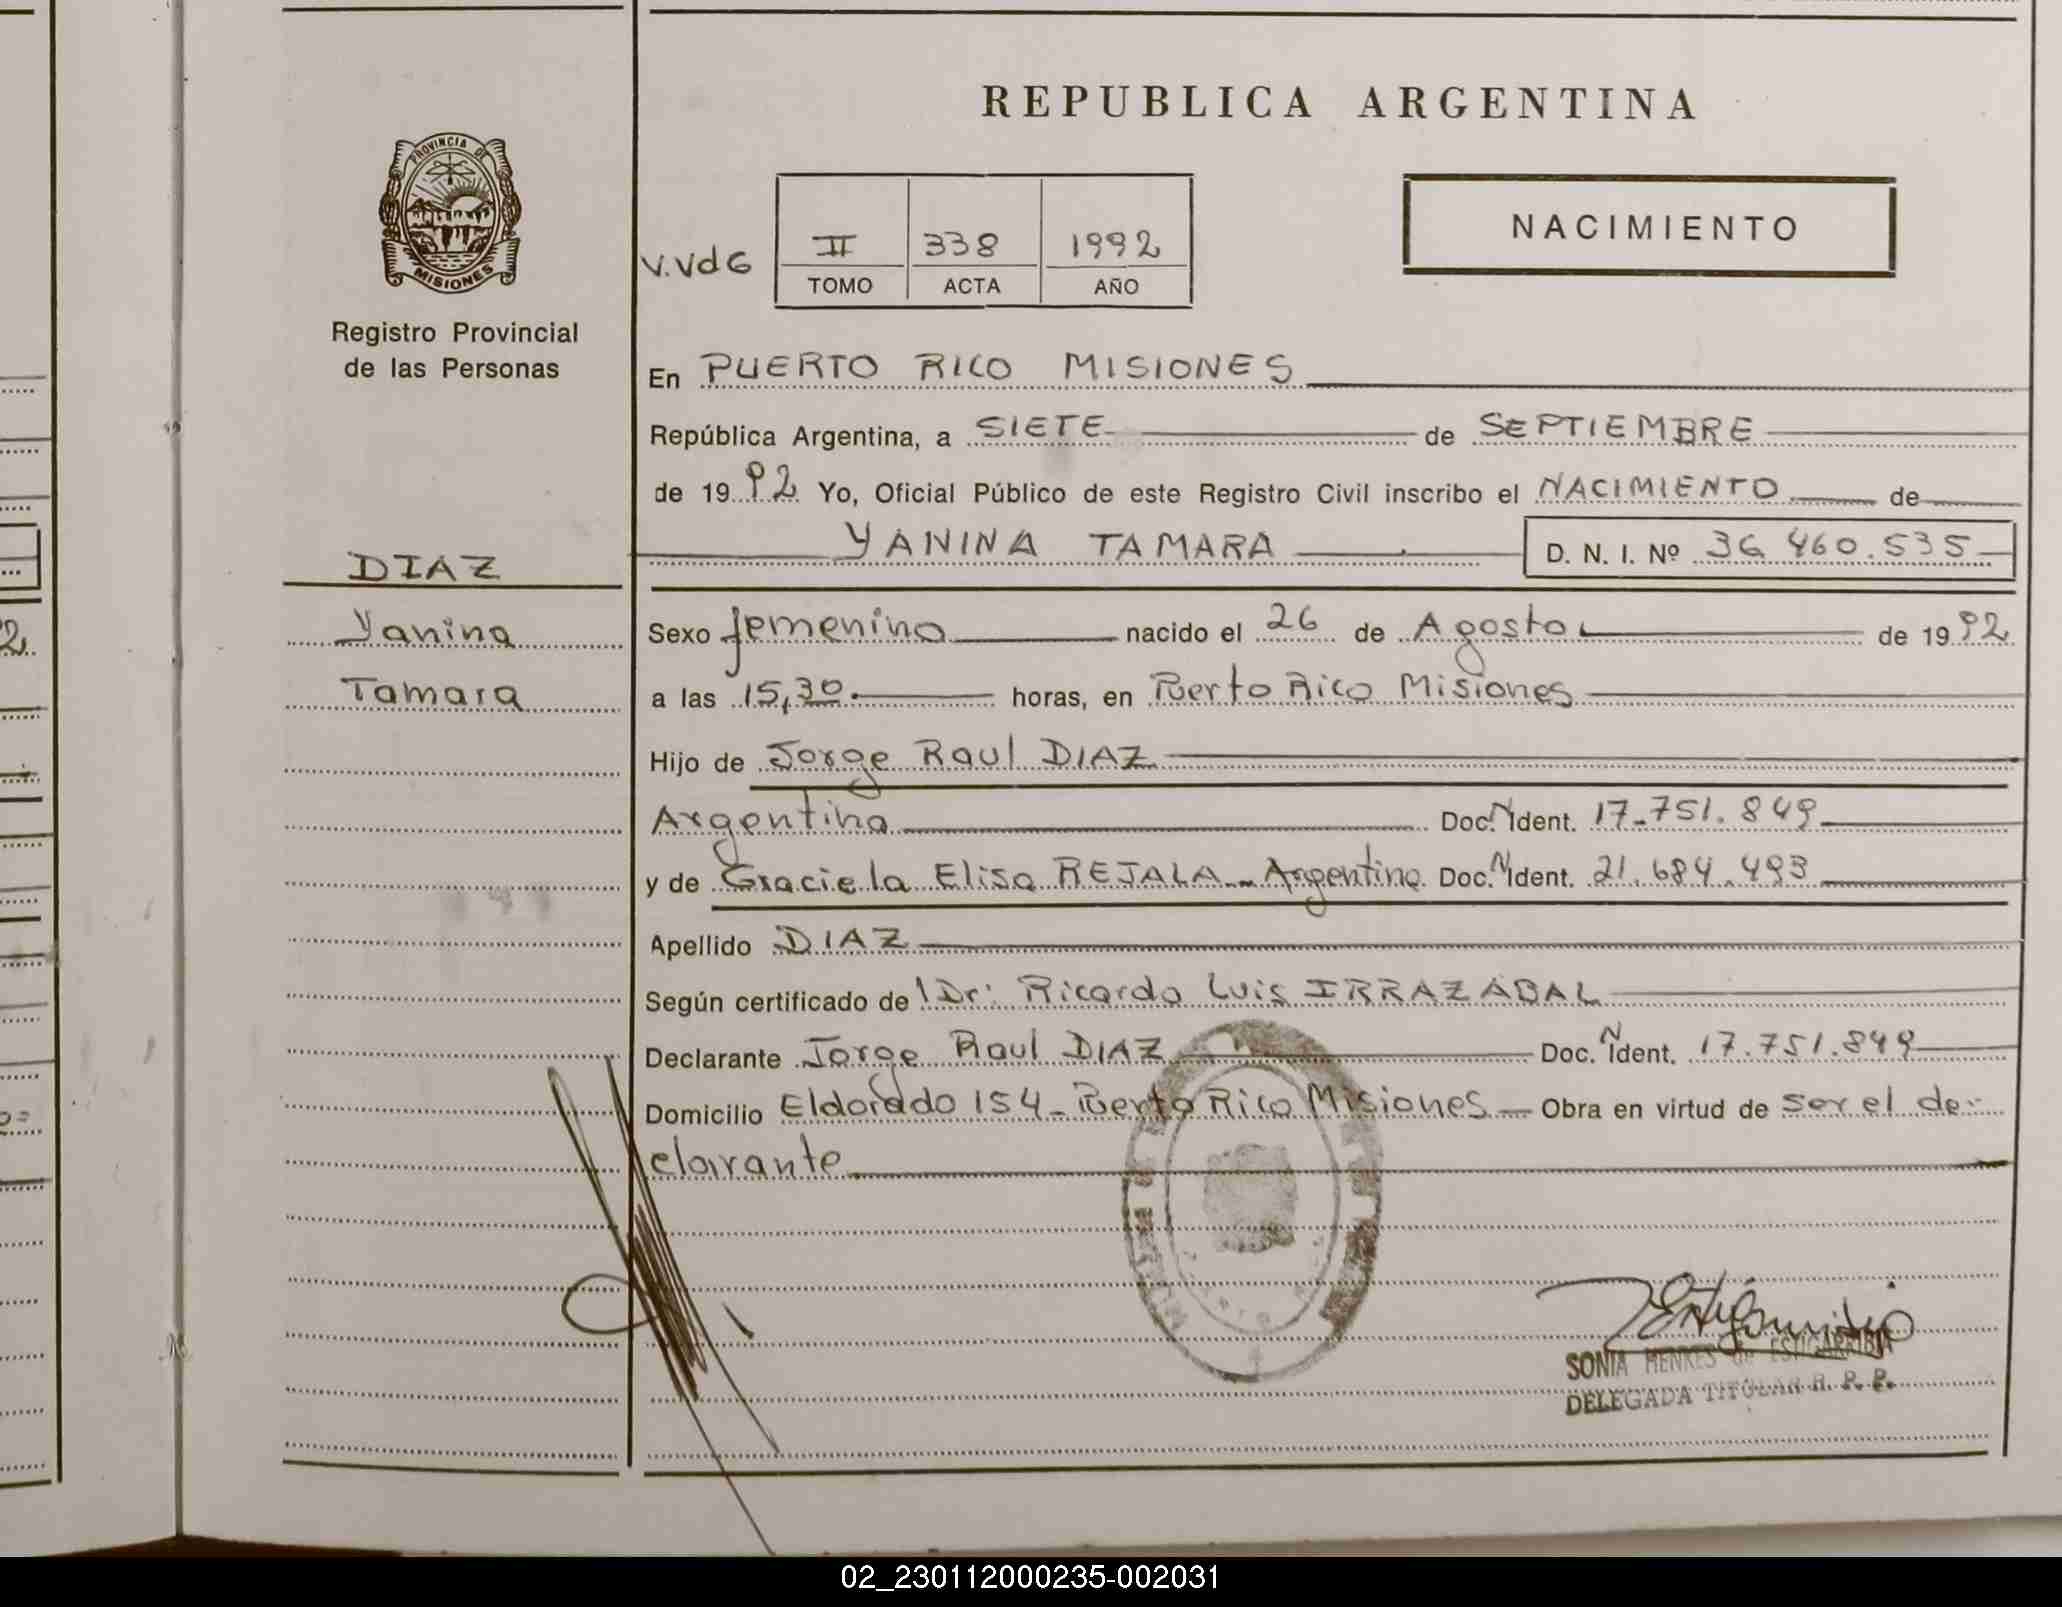 PROVINCIA DE
MISIONES
Registro Provincial
de las Personas
REPUBLICA ARGENTINA
NACIMIENTO
V.VdG
II 338 1992
TOMO ACTA AÑO
En PUERTO RICO MISIONES
República Argentina, a SIETE de SEPTIEMBRE
de 1992 Yo, Oficial Público de este Registro Civil inscribo el NACIMIENTO de
YANINA TAMARA D. N. I. Nº 36.460.535
DIAZ
Yanina
Tamara
Sexo femenino nacido el 26 de Agosto de 1992
a las 15,30. horas, en Puerto Rico Misiones
Hijo de Jorge Raul DIAZ
Argentino Doc. N Ident. 17.751.849
y de Graciela Elisa REJALA Argentina Doc. N Ident. 21.684.493
Apellido DIAZ
Según certificado de Dr: Ricardo Luis IRRAZABAL
Declarante Jorge Raul DIAZ Doc. N Ident. 17.751.849
Domicilio Eldorado 154 - Puerto Rico Misiones Obra en virtud de ser el de-
clarante
SONIA HENKES de ESTIGARRIBIA
DELEGADA TITULAR R. P. P.
02_230112000235-002031